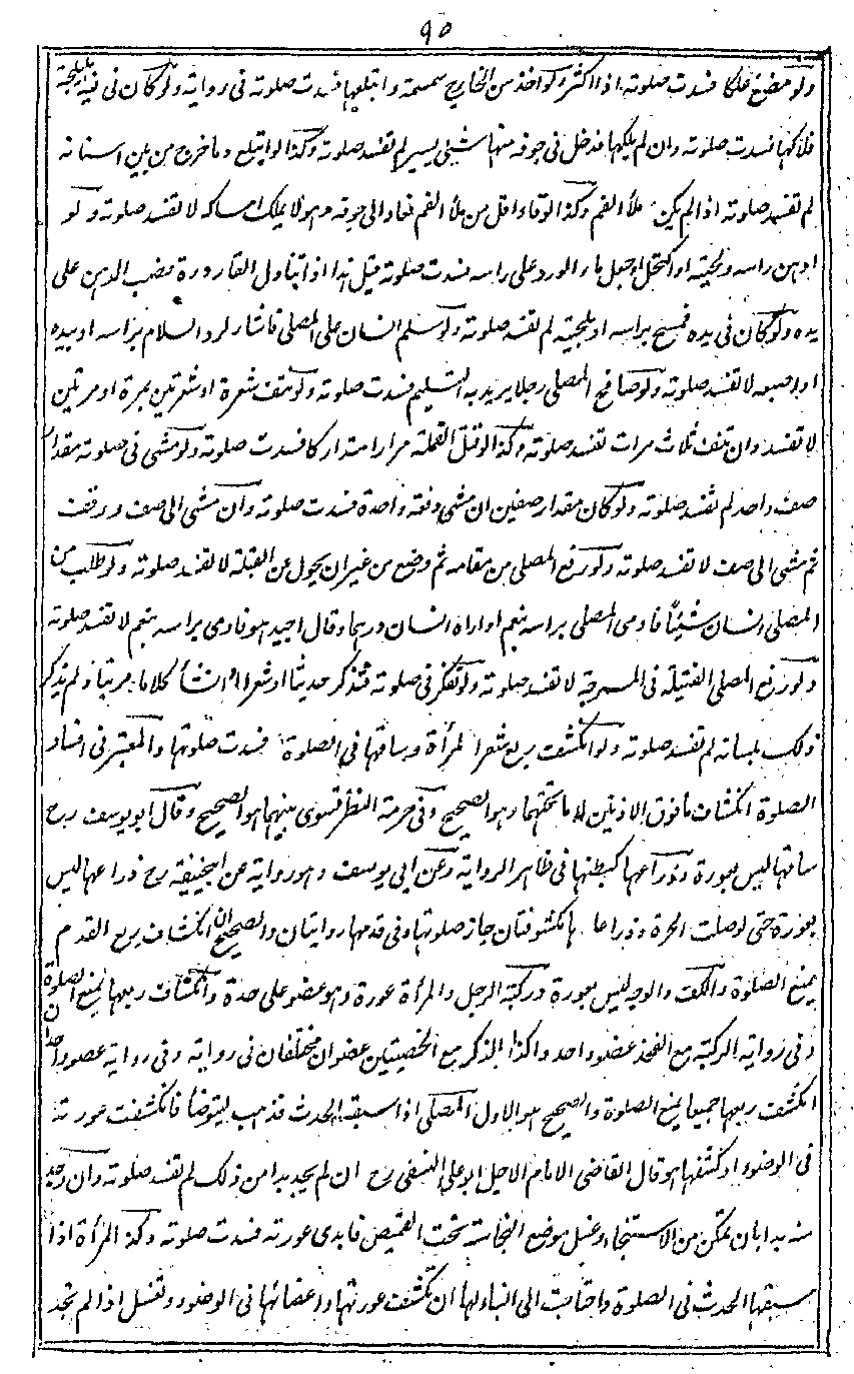 ٩٥
ولو مضغ علكا فسدت صلوته اذا اكثر ولو اخذ من الخارج سمسمة وابتلعها فسدت صلوته فى رواية ولو كان فى فيه هليلجة
فلاكها فسدت صلوته وان لم يلكها فدخل فى جوفه منها شيئ يسير لم تفسد صلوته وكذا لو ابتلع وما خرج من بين اسنانه
لم تفسد صلوته اذا لم يكن ملأ الفم وكذا لو قاء اقل من ملأ الفم فعاد الى جوفه وهو لا يملك امساكه لا تفسد صلوته ولو
ادهن راسه ولحيته او اكتحل او جعل ماء الورد على راسه فسدت صلوته قيل هذا اذا تناول القارورة فصب الدهن على
يده ولو كان فى يده فمسح براسه او بلحيته لم تفسد صلوته ولو سلم انسان على المصلى فاشار لرد السلام براسه او بيده
او اصبعه لا تفسد صلوته ولو صافح المصلى رجلا يريد به التسليم فسدت صلوته ولو نتف شعرة او شعرتين بمرة او مرتين
لا تفسد وان نتف ثلاث مرات تفسد صلوته وكذا لو قتل القملة مرارا متداركا فسدت صلوته ولو مشى فى صلوته مقدار
صف واحد لم تفسد صلوته ولو كان مقدار صفين ان مشى دفعة واحدة فسدت صلوته وان مشى الى صف ووقف
ثم مشى الى صف لا تفسد صلوته ولو رفع المصلى من مقامه ثم وضع من غير ان يحول عن القبلة لا تفسد صلوته ولو طلب من
المصلى انسان شيئا فاومى المصلى براسه بنعم او اراه انسان درهما وقال اجيد هو فاومى براسه بنعم لا تفسد صلوته
ولو رفع المصلى الفتيلة فى المسرجة لا تفسد صلوته ولو تفكر فى صلوته فتذكر حديثا او شعرا او انشأ كلاما مرتبا ولم يذكر
ذلك بلسانه لم تفسد صلوته ولو انكشف ربع شعر المرأة وساقها فى الصلوة فسدت صلوتها والمعتبر فى افساد
الصلوة انكشاف ما فوق الاذنين لا ما تحتهما وهو الصحيح وفى حرمة النظر تسوى بينهما هو الصحيح وقال ابو يوسف رح
ساقها ليس بعورة وذراعها كبطنها فى ظاهر الرواية وعن ابى يوسف وهو رواية عن ابيحنيفة رح ذراعها ليس
بعورة حتى لو صلت الحرة وذراعاها مكشوفتان جاز صلوتها وفى قدمها روايتان والصحيح ان انكشاف ربع القدم
يمنع الصلوة والكف والوجه ليس بعورة وركبة الرجل والمرأة عورة وهو عضو على حدة وانكشاف ربعها يمنع الصلوة
وفى رواية الركبة مع الفخذ عضو واحد وكذا الذكر مع الخصيتين عضوان مختلفان فى رواية وفى رواية عضو واحد ان
انكشف ربعها جميعا يمنع الصلوة والصحيح هو الاول المصلى اذا سبقه الحدث فذهب ليتوضأ فانكشفت عورته
فى الوضوء او كشفها هو قال القاضى الامام الاجل ابو على النسفى رح ان لم يجد بدا من ذلك لم تفسد صلوته وان وجد
منه بدا بان تمكن من الاستنجاء وغسل موضع النجاسة تحت القميص فابدى عورته فسدت صلوته وكذا المرأة اذا
سبقها الحدث فى الصلوة واحتاجت الى البناء لها ان تكشف عورتها واعضائها فى الوضوء وتغسل اذا لم تجد